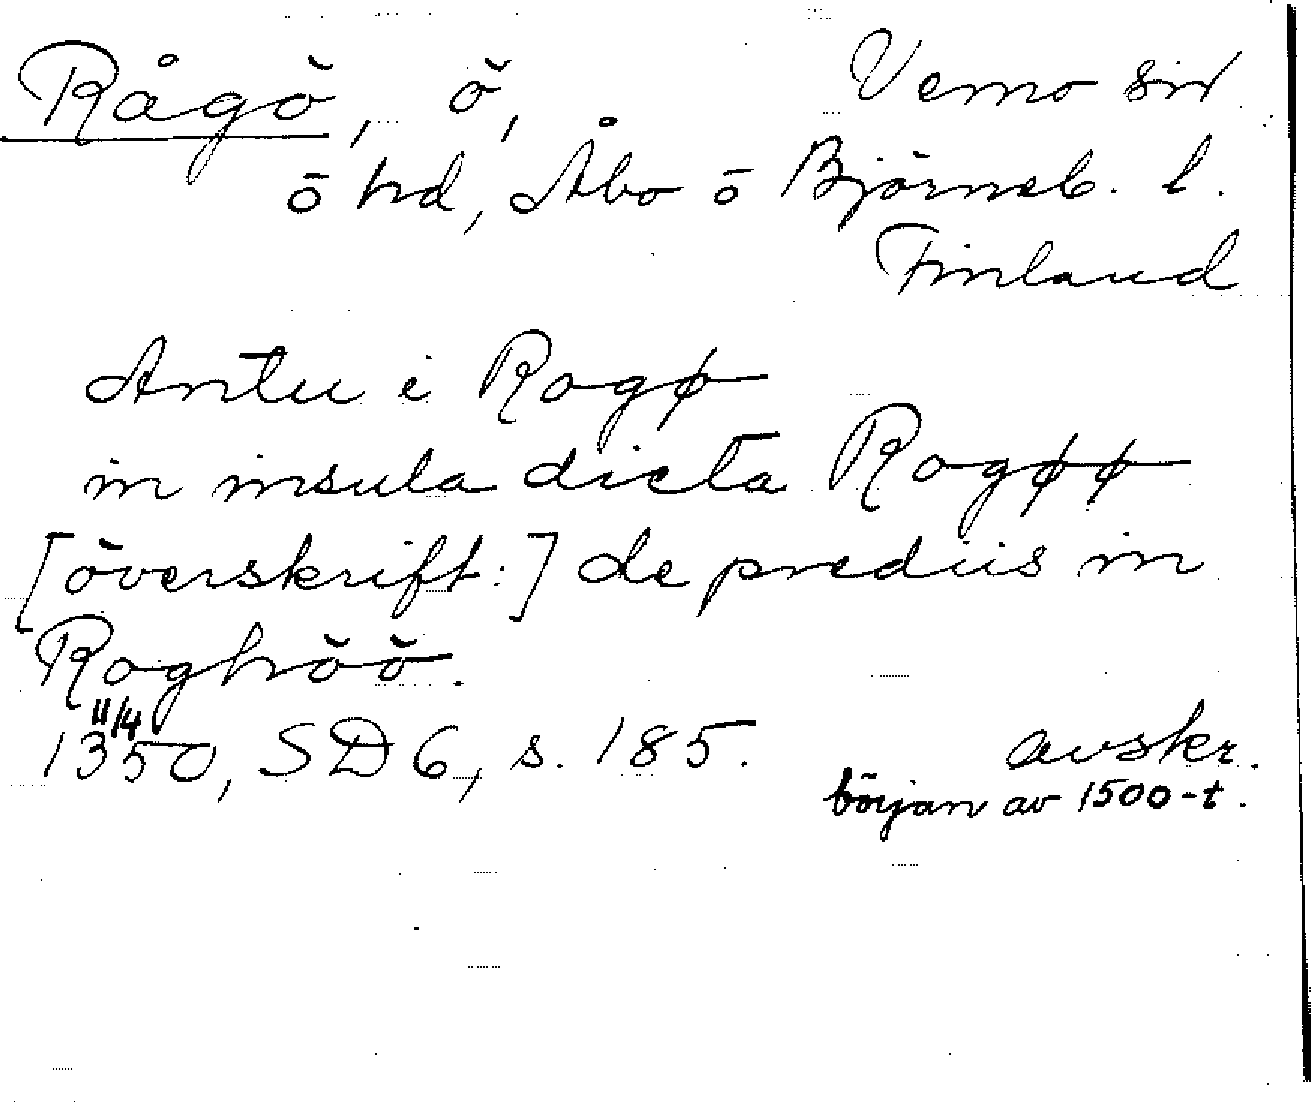 Rågö, ö, Vemo sn
ö hd, Åbo o Björneb. l.
Finland
Antu i Rogø
in insula dicta Rogøø
[överskrift:] de prediis in
Roghöö.
11/4
1350, SD 6, s. 185. avskr.
början av 1500-t.